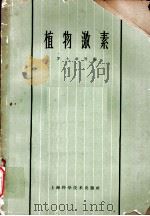 植物激素
上海科学技术出版社